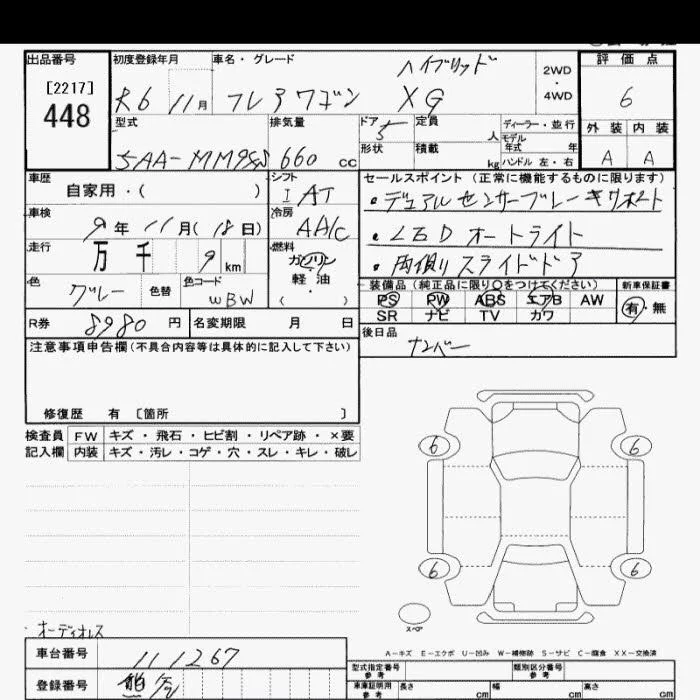 出品番号 初度登録年月 車名・グレード ハイブリッド 2WD ・ 4WD 評価点
[2217]
448
R6 11月 フレアワゴン XG 6
型式 排気量 ドア 5 定員 人 ディーラー・並行
モデル年式 年 外装 内装
5AA-MM9 660 cc 形状 積載 kg ハンドル 左・右 A A
車歴 シフト セールスポイント (正常に機能するものに限ります)
自家用・( ) I AT ・デュアルセンサーブレーキサポート
車検 冷房
9年 11月(18日) AA/C ・LED オートライト
走行 万 千 9 km 燃料 ガソリン・軽油 ( ) ・両側スライドドア
色 グレー 色替 色コード WBW 装備品 (純正品に限り〇をつけてください) 新車保証書
PS PW ABS エアB AW 有・無
SR ナビ TV カワ
R券 8980 円 名変期限 月 日 後日品
ナンバー
注意事項申告欄(不具合内容等は具体的に記入して下さい)
修復歴 有 〔箇所 〕
検査員 FW キズ・飛石・ヒビ割・リペア跡・×要
記入欄 内装 キズ・汚レ・コゲ・穴・スレ・キレ・破レ
6 6
6 6
スペア
オーディオレス
A-キズ E-エクボ U-凹み W-補修跡 S-サビ C-腐食 XX-交換済
車台番号 111267
型式指定番号 参考 類別区分番号 参考
登録番号
車庫証明用 参考 長さ cm 幅 cm 高さ cm